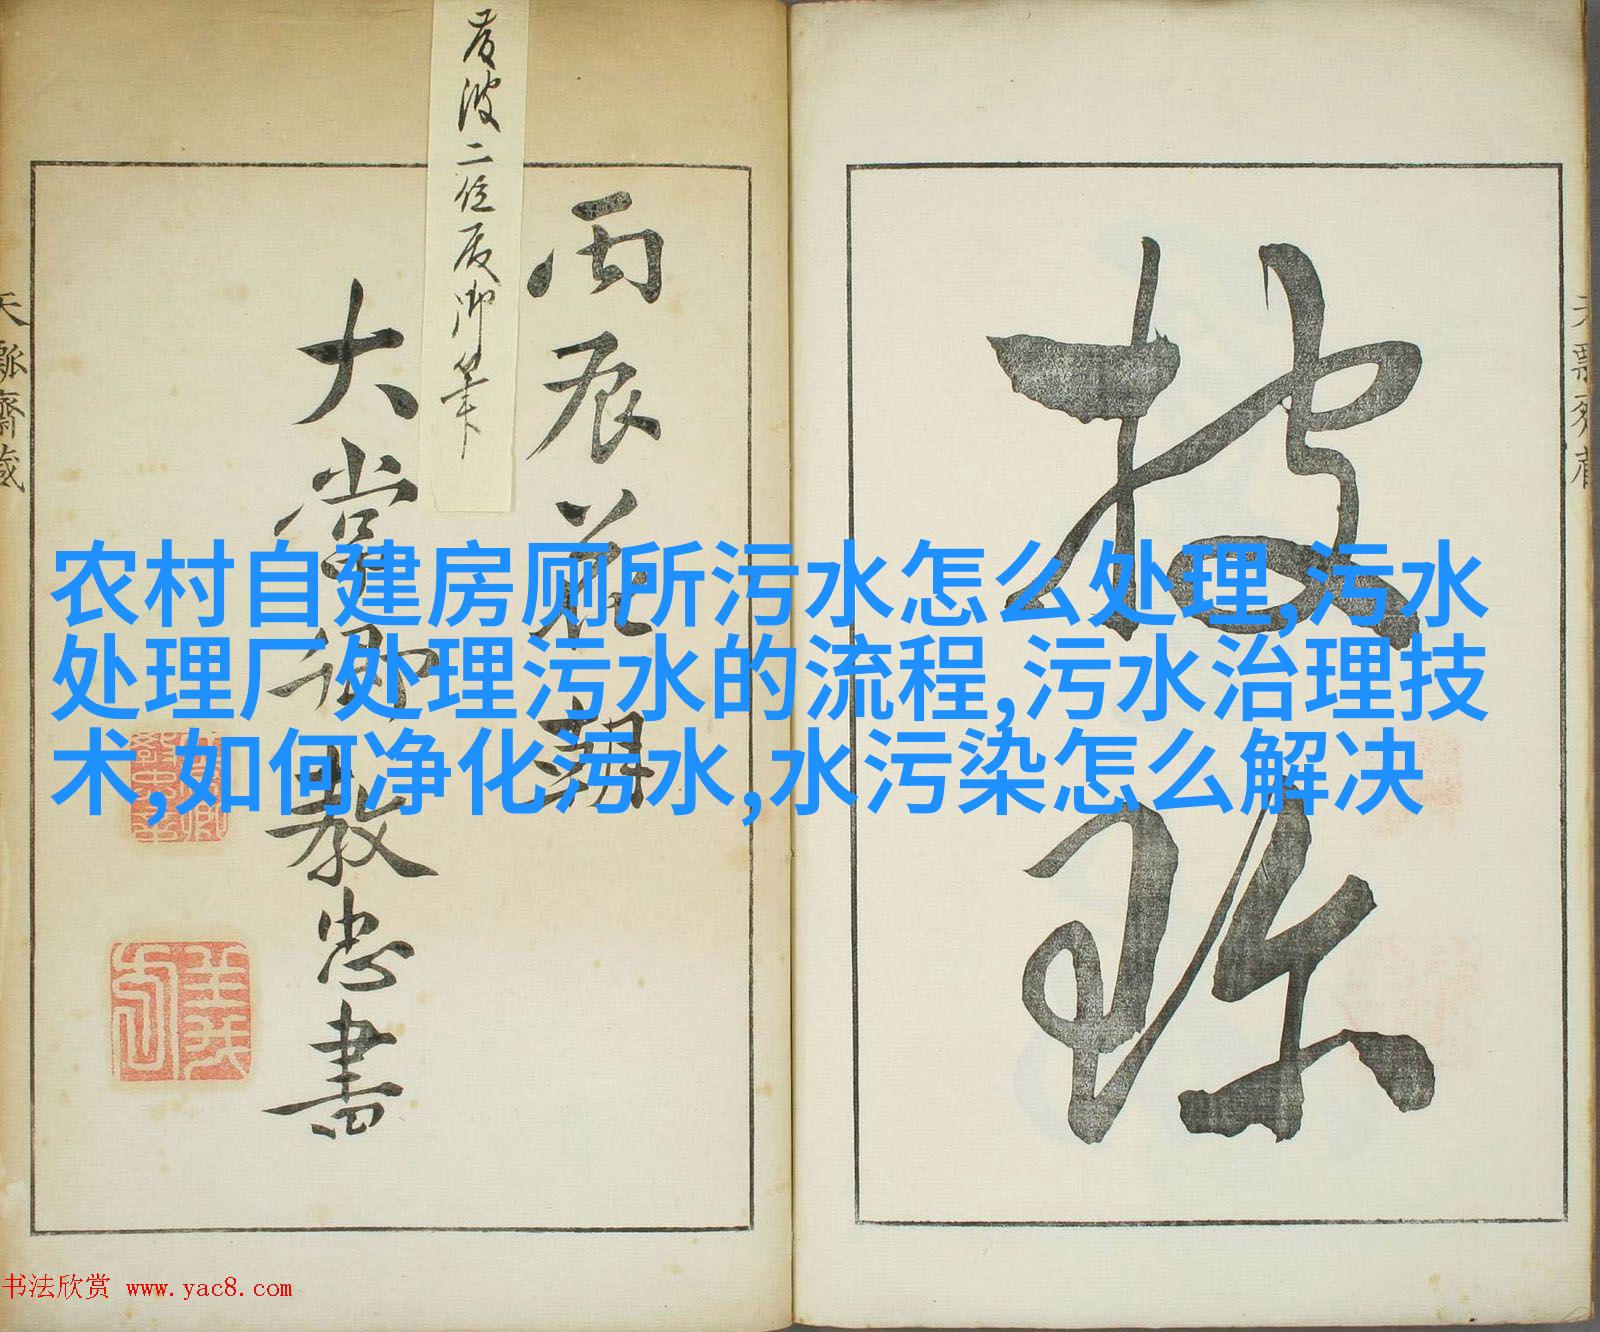 披琢
丙辰
大常卿教忠書
二位辰御筆
天瓢齋蔵
农村自建房厕所污水怎么处理,污水
处理厂处理污水的流程,污水治理技
术,如何净化污水,水污染怎么解决
书法欣赏 www.yac8.com